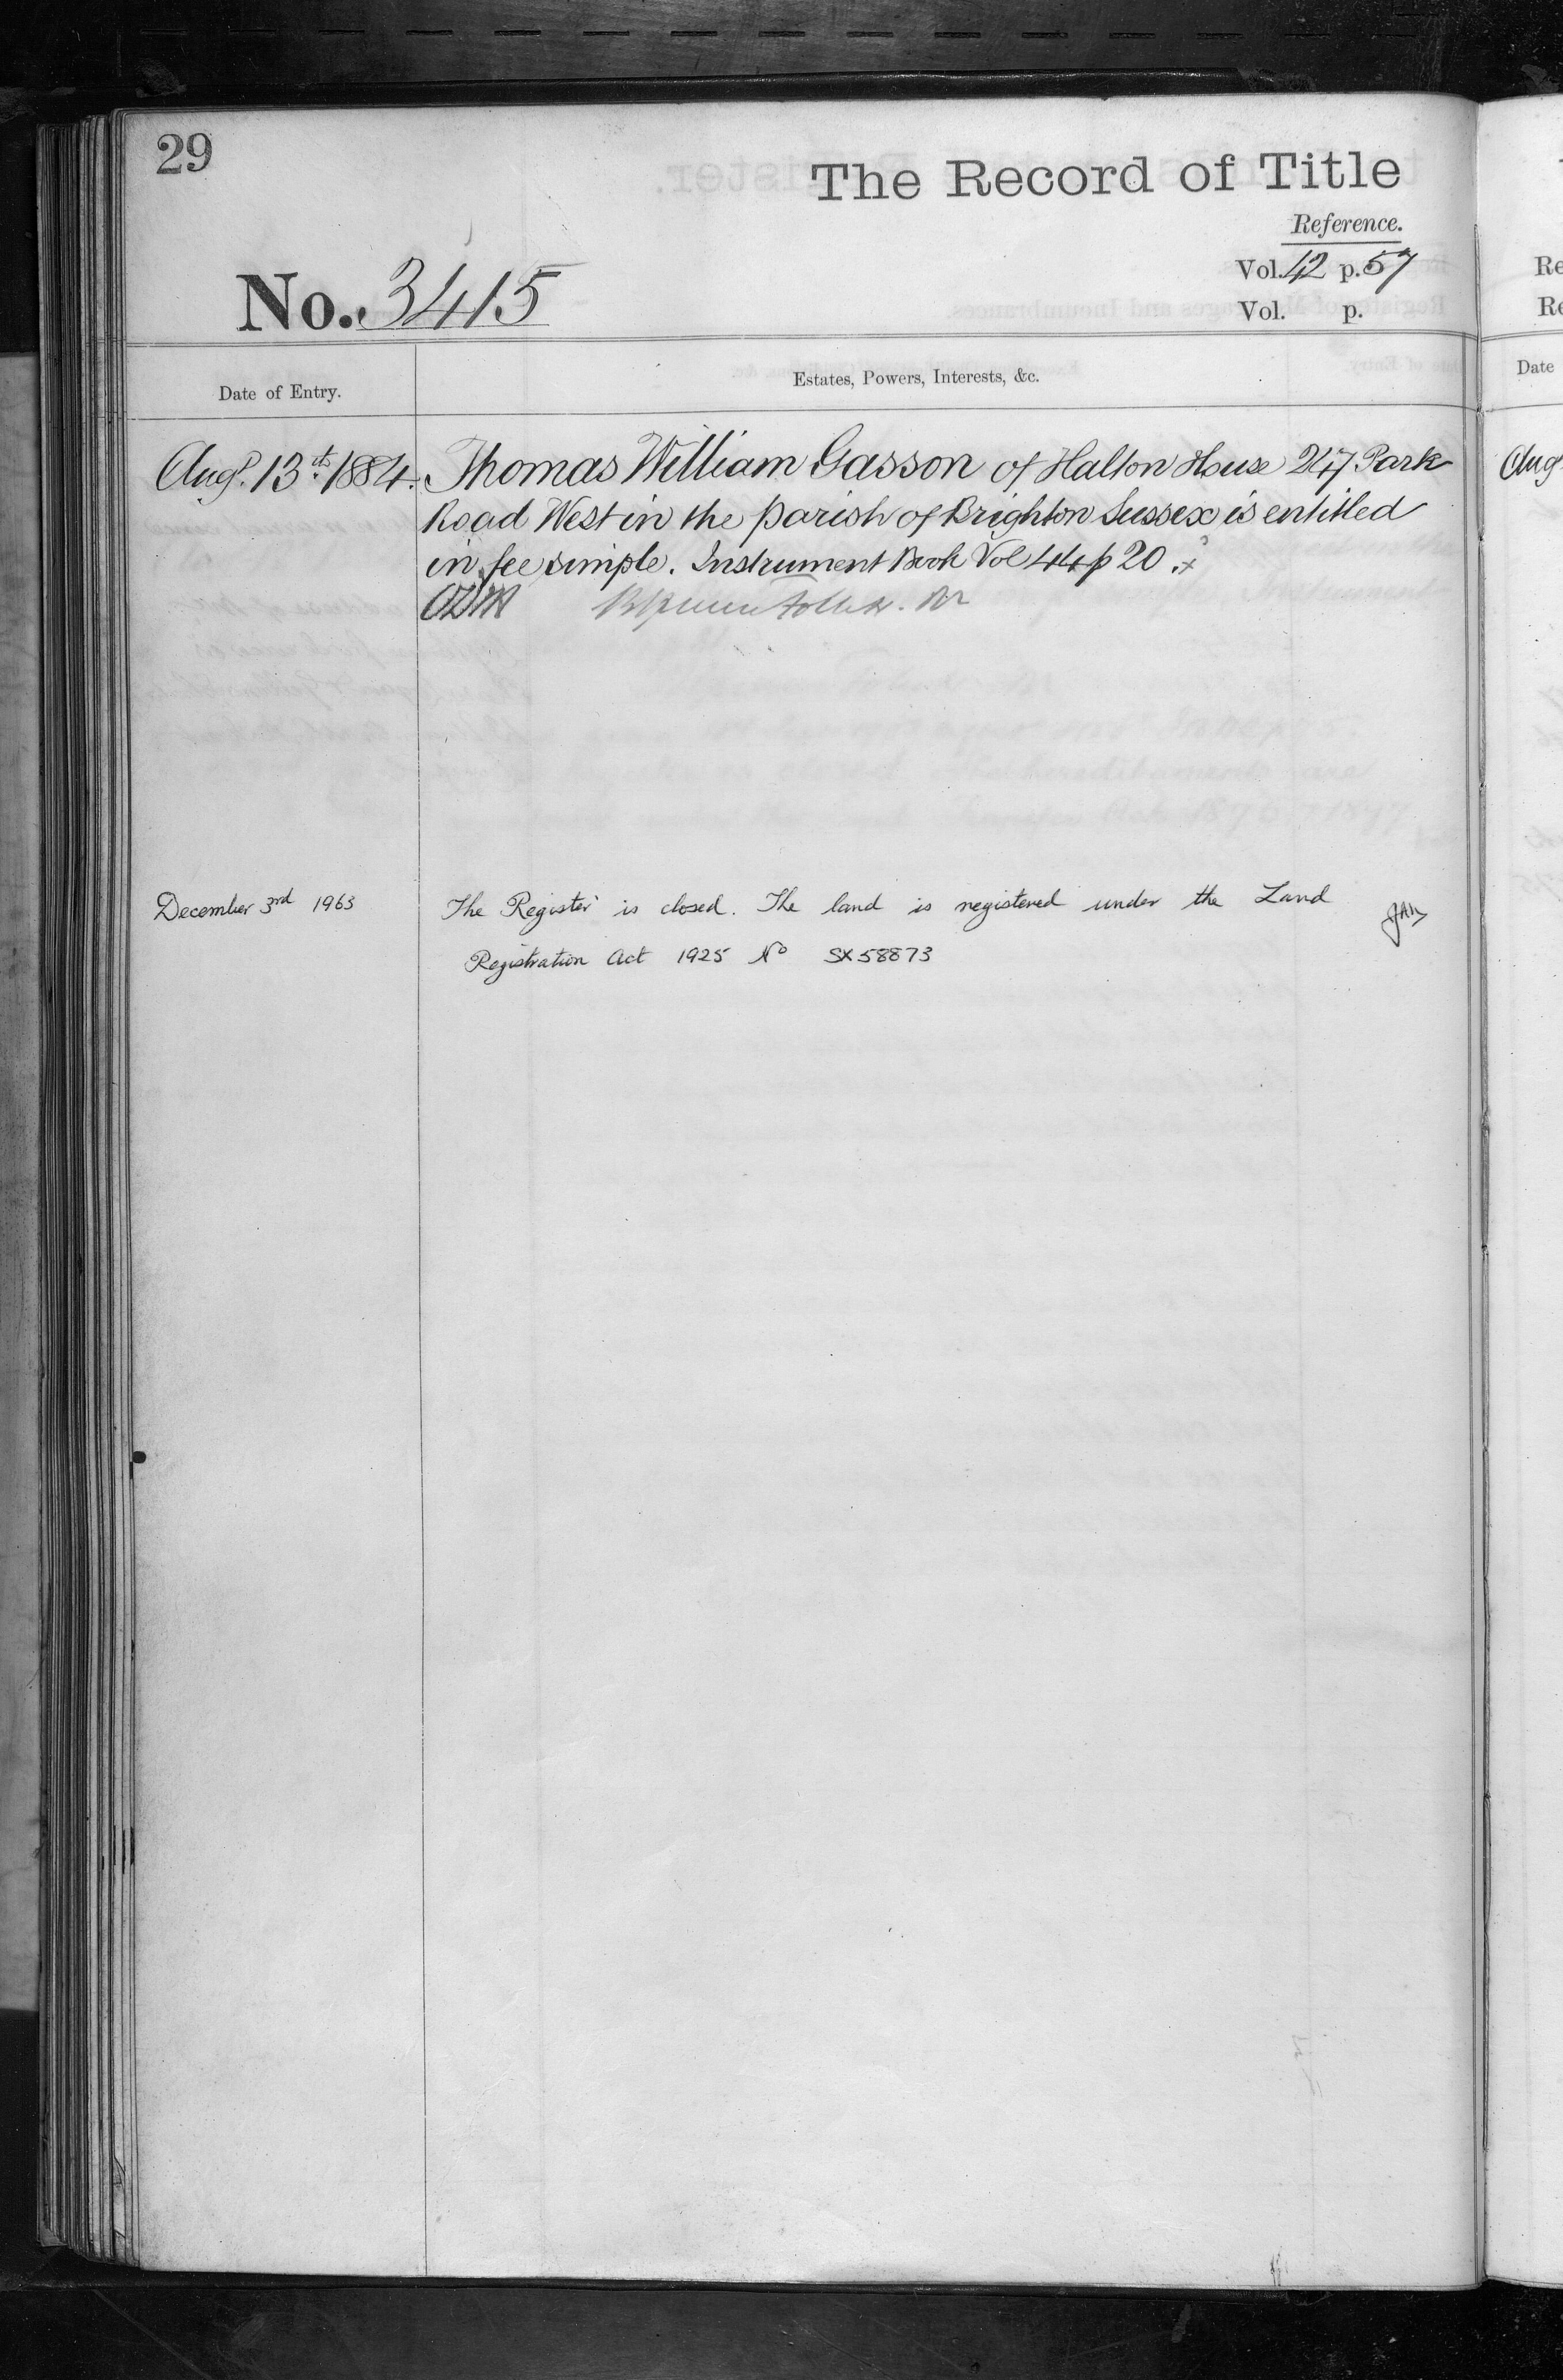 29
The Record of Title
Reference.
Vol. 42 p. 57
Vol. p.
No. 3415
Date of Entry.
Estates, Powers, Interests, &c.
Augt. 13th 1884. Thomas William Gasson of Halton House 247 Park
Road West in the parish of Brighton Sussex is entitled
in fee simple. Instrument Book Vol 44 p 20.
December 3rd 1963 The Register is closed. The land is registered under the Land
Registration Act 1925 No SX58873
Re
Re
Date
Aug